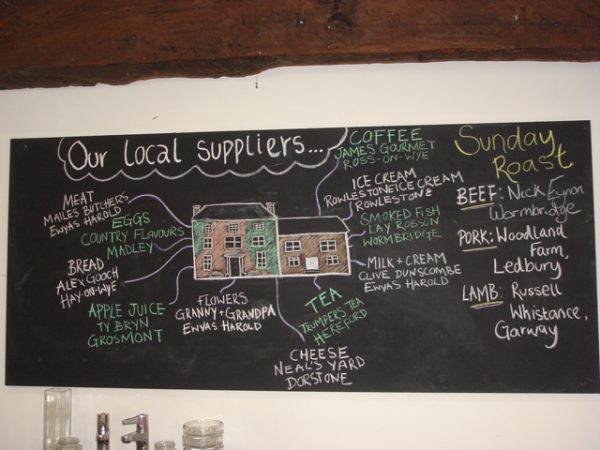 Our local suppliers...
MEAT
MAILES BUTCHERS
EWYAS HAROLD
EGGS
COUNTRY FLAVOURS
MADLEY
BREAD
ALEX GOOCH
HAY-ON-WYE
APPLE JUICE
TY BRYN
GROSMONT
FLOWERS
GRANNY + GRANDPA
EWYAS HAROLD
CHEESE
NEAL'S YARD
DORSTONE
TEA
TRUMPERS TEA
HEREFORD
MILK + CREAM
CLIVE DUNSCOMBE
EWYAS HAROLD
SMOKED FISH
LAY ROBSON
WORMBRIDGE
ICE CREAM
ROWLESTONE ICE CREAM
ROWLESTONE
COFFEE
JAMES' GOURMET
ROSS-ON-WYE
Sunday
Roast
BEEF: Nick Eynon
Wormbridge
PORK: Woodland
Farm,
Ledbury
LAMB: Russell
Whistance,
Garway